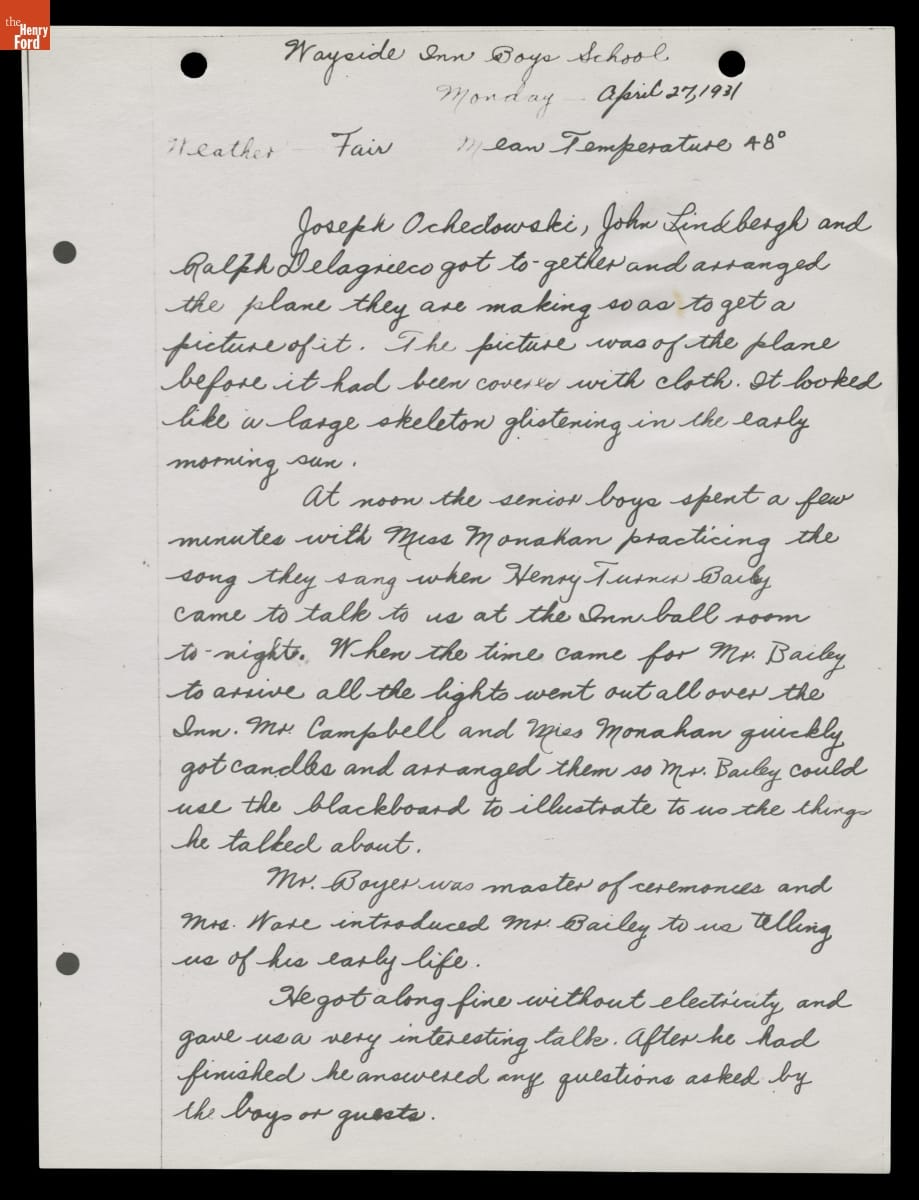 the
Henry
Ford
Wayside Inn Boys School
Monday - April 27, 1931
Weather - Fair Mean Temperature 48°
Joseph Ochedowski, John Lindbergh and
Ralph Delagrieco got to-gether and arranged
the plane they are making so as to get a
picture of it. The picture was of the plane
before it had been covered with cloth. It looked
like a large skeleton glistening in the early
morning sun.
At noon the senior boys spent a few
minutes with Miss Monahan practicing the
song they sang when Henry Turner Baily
came to talk to us at the Inn ball room
to-night. When the time came for Mr. Bailey
to arrive all the lights went out all over the
Inn. Mr. Campbell and Miss Monahan quickly
got candles and arranged them so Mr. Bailey could
use the blackboard to illustrate to us the things
he talked about.
Mr. Boyer was master of ceremonies and
Mrs. Ware introduced Mr. Bailey to us telling
us of his early life.
He got along fine without electricity and
gave us a very interesting talk. After he had
finished he answered any questions asked by
the boys or guests.